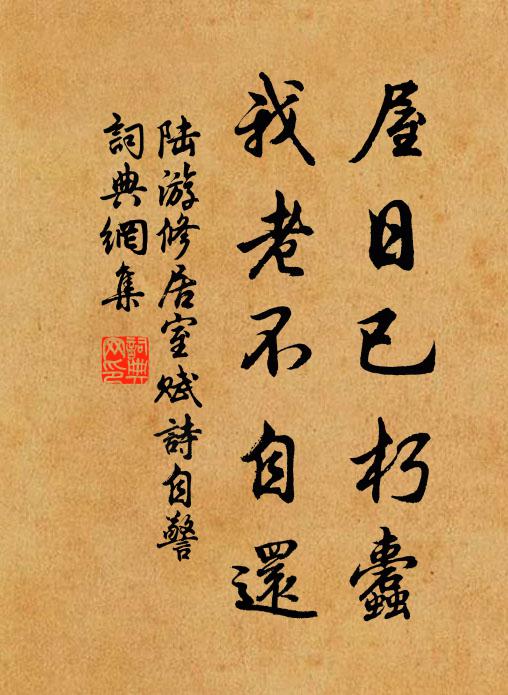 屋日已朽蠹
我老不自還
陸游修居室賦詩自警
詞典網集
詞典
网印